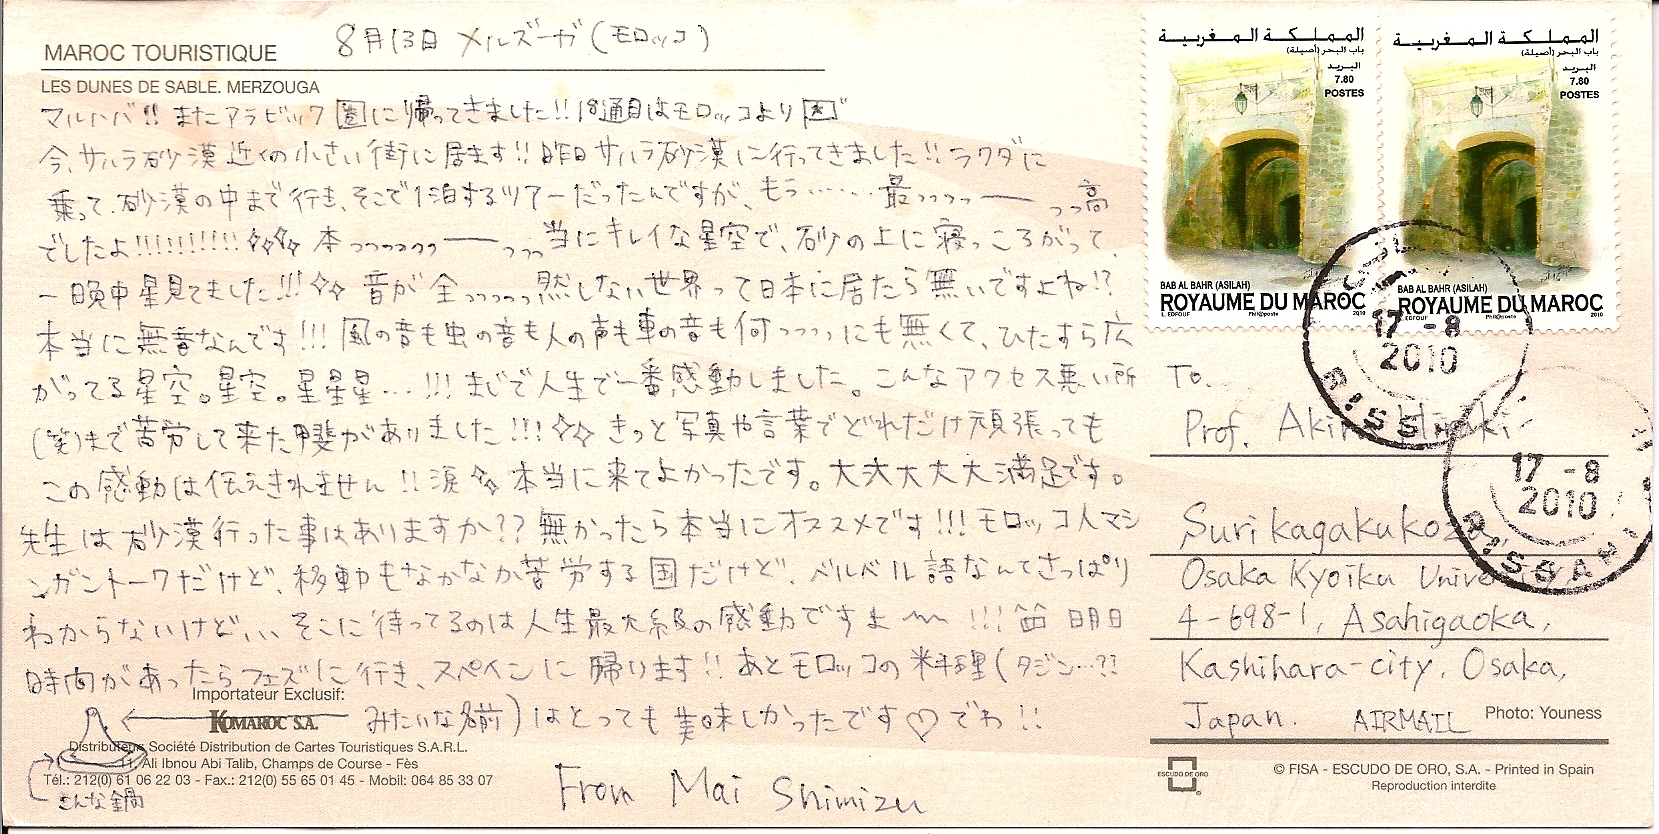 8月13日 メルズーガ(モロッコ)
MAROC TOURISTIQUE
LES DUNES DE SABLE. MERZOUGA
マルハバ!! またアラビック圏に帰ってきました!! 18通目はモロッコより
今、サハラ砂漠近くの小さい街に居ます!! 昨日サハラ砂漠に行ってきました!! ラクダに
乗って、砂漠の中まで行き、そこで1泊するツアーだったんですが、もう……… 最っっっっーーっっ高
でしたよ!!!!!!!!!! 本っっっっっっーーっっっ当にキレイな星空で、砂の上に寝っころがって、
一晩中星見てました!!! 音が全っっっっっ然しない世界って日本に居たら無いですよね!?
本当に無音なんです!!! 風の音も虫の音も人の声も車の音も何っっっっにも無くて、ひたすら広
がってる星空。星空。星星星…!!! まじで人生で一番感動しました。こんなアクセス悪い所
(笑)まで苦労して来た甲斐がありました!!! きっと写真や言葉でどれだけ頑張っても
この感動は伝えきれません!! 涙 本当に来てよかったです。大大大大大満足です。
先生は砂漠行った事はありますか?? 無かったら本当にオススメです!!! モロッコ人マシ
ンガントークだけど、移動もなかなか苦労する国だけど ベルベル語なんてさっぱり
わからないけど、、、そこに待ってるのは人生最大級の感動ですよ〜!!! 明日
時間があったらフェズに行き、スペインに帰ります!! あとモロッコの料理(タジン…??
みたいな名前)はとっても美味しかったです♡ でわ!!
こんな鍋
From Mai Shimizu
Importateur Exclusif:
KOMAROC S.A.
Distributeur Société Distribution de Cartes Touristiques S.A.R.L.
11, Ali Ibnou Abi Talib, Champs de Course - Fès
Tél.: 212(0) 61 06 22 03 - Fax.: 212(0) 55 65 01 45 - Mobil: 064 85 33 07
المملكة المغربية
باب البحر (أصيلة)
البريد
7.80
POSTES
BAB AL BAHR (ASILAH)
ROYAUME DU MAROC
L. EDFOUF Phil@poste 2010
المملكة المغربية
باب البحر (أصيلة)
البريد
7.80
POSTES
BAB AL BAHR (ASILAH)
ROYAUME DU MAROC
L. EDFOUF Phil@poste 2010
17 - 8
2010
17 - 8
2010
RISSANI
To.
Prof.
Surikagakukoza,
Osaka Kyoiku University,
4-698-1, Asahigaoka,
Kashihara-city, Osaka,
Japan. AIRMAIL
Photo: Youness
ESCUDO DE ORO
© FISA - ESCUDO DE ORO, S.A. - Printed in Spain
Reproduction interdite